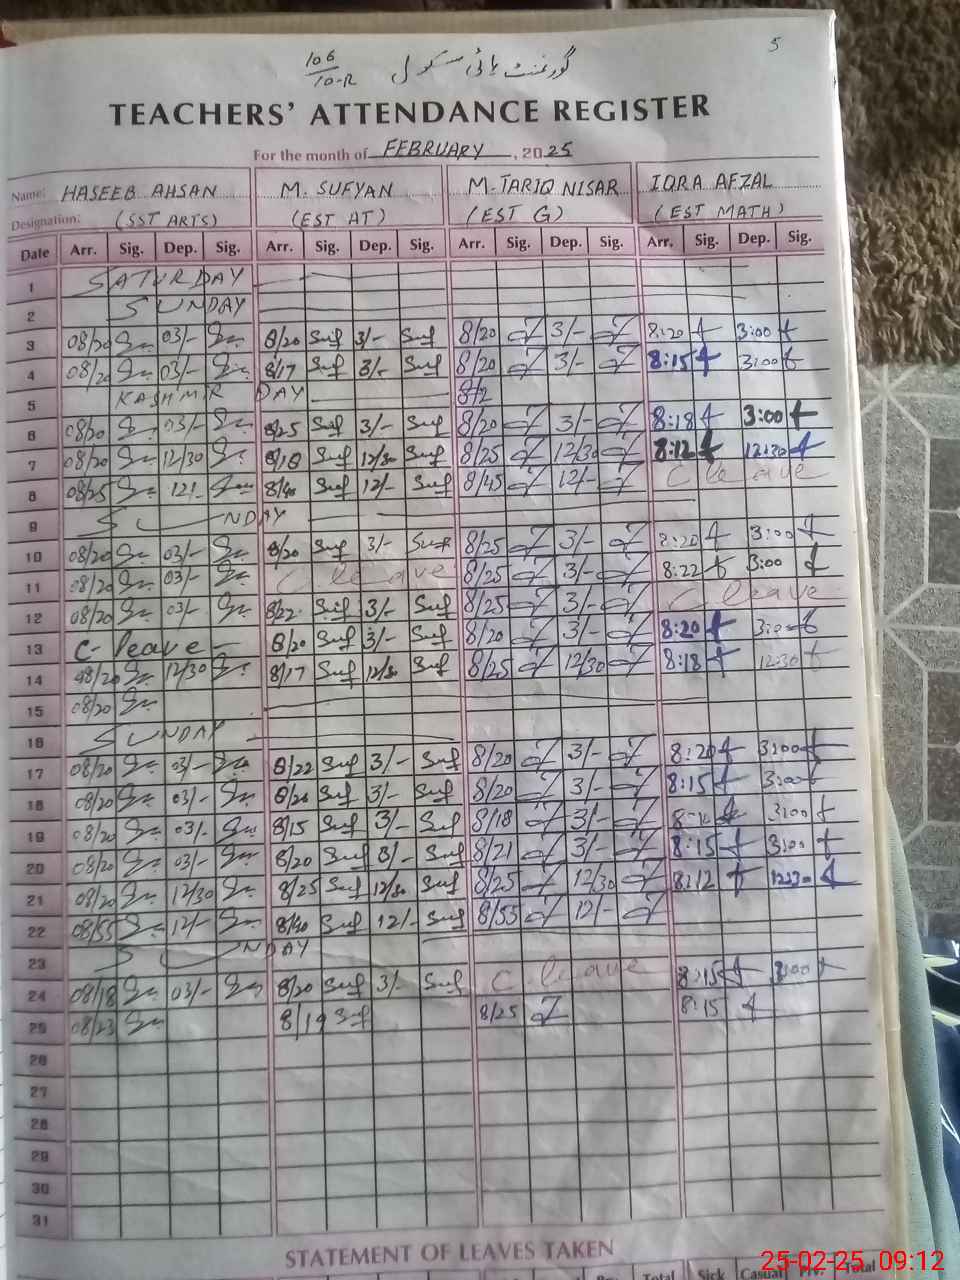 5
گورنمنٹ ہائی سکول 106/10-R
TEACHERS' ATTENDANCE REGISTER
For the month of FEBRUARY, 2025
Name: HASEEB AHSAN M. SUFYAN M. TARIQ NISAR IQRA AFZAL
Designation: (SST ARTS) (EST AT) (EST G) (EST MATH)
Date Arr. Sig. Dep. Sig. Arr. Sig. Dep. Sig. Arr. Sig. Dep. Sig. Arr. Sig. Dep. Sig.
1 SATURDAY
2 SUNDAY
3 08/20 03/- 8/20 Suf 3/- Suf 8/20 3/- 8:20 3:00
4 08/20 03/- 8/17 Suf 3/- Suf 8/20 3/- 8:15 3:00
5 KASHMIR DAY
6 08/20 03/- 8/25 Suf 3/- Suf 8/20 3/- 8:18 3:00
7 08/20 12/30 8/18 Suf 12/30 Suf 8/25 12/30 8:12 12:30
8 08/25 12/- 8/40 Suf 12/- Suf 8/45 12/- C leave
9 SUNDAY
10 08/20 03/- 8/20 Suf 3/- Suf 8/25 3/- 8:20 3:00
11 08/20 03/- C leave 8/25 3/- 8:22 3:00
12 08/20 03/- 8/22 Suf 3/- Suf 8/25 3/- C leave
13 C- leave - 8/20 Suf 3/- Suf 8/20 3/- 8:20 3:00
14 08/20 12/30 8/17 Suf 12/30 Suf 8/25 12/30 8:18 12:30
15 08/20
16 SUNDAY
17 08/20 03/- 8/22 Suf 3/- Suf 8/20 3/- 8:20 3:00
18 08/20 03/- Suf 3/- Suf 8/20 3/- 8:15 3:00
19 08/20 03/- 8/15 Suf 3/- Suf 8/18 3/- 3:00
20 08/20 03/- 8/20 Suf 3/- Suf 8/21 3/- 8:15 3:00
21 08/20 12/30 8/25 Suf 12/30 Suf 8/25 12/30 8:12 12:30
22 08/55 12/- 8/40 Suf 12/- Suf 8/55 12/-
23 SUNDAY
24 08/18 03/- 8/20 Suf 3/- Suf C. leave 8:15 3:00
25 08/23 8/19 Suf 8/25 8:15
26
27
28
29
30
31
STATEMENT OF LEAVES TAKEN
Total Sick Casual Prv. Total
25-02-25 09:12